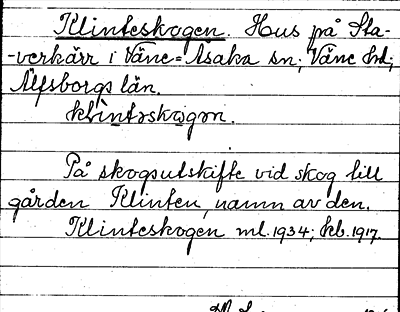 Klinteskogen. Hus på Sta-
-verkärr i Väne-Åsaka sn; Väne hd;
Älfsborgs län.
klintəskogən.
På skogsutskifte vid skog till
gården Klinten, namn av den.
Klinteskogen ml. 1934; kb. 1917.